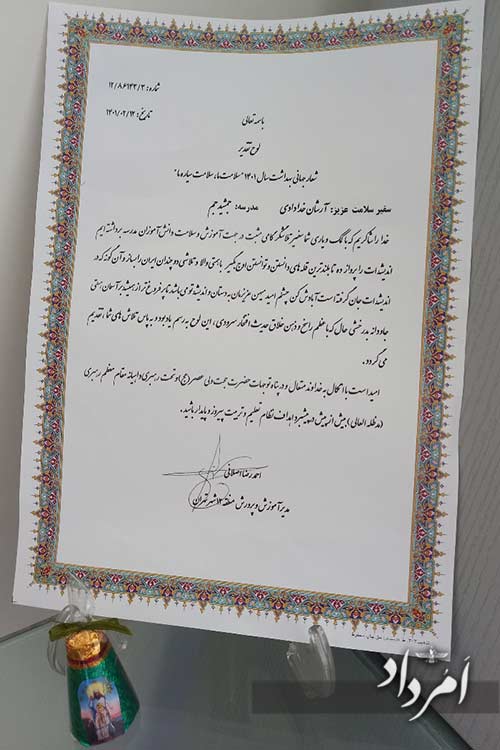 شماره: ۱۲/۸۶۱۴۳/۳
تاریخ: ۱۴۰۱/۰۲/۱۲
باسمه تعالی
لوح تقدیر
شعار جهانی بهداشت سال ۱۴۰۱ "سلامت ما، سلامت سیاره ما"
سفیر سلامت عزیز: آرشان خداودادی مدرسه: جمشید جم
خدا را شاکریم که با کمک و یاری شما سفیر تلاشگر گامی مثبت در جهت آموزش و سلامت دانش‌آموزان مدرسه برداشته ایم
اندیشه‌ات را پرواز ده تا بلندترین قله‌های دانستن و توانستن اوج بگیر. با همتی والا و تلاشی دو چندان ایران را بساز و آن گونه که در
اندیشه‌ات جان گرفته است آبادش کن چشم امید میهن عزیزمان به دستان و اندیشه توست باشد تا پر فروغ تر از همیشه در آسمان هستی
جاودانه بدرخشی حال که با عظم راسخ و ذهن خلاق حدیث افتخار سرودی، این لوح به رسم یادبود و به پاس تلاش های شما تقدیم
می گردد.
امید است با اتکال به خداوند متعال و در پناه توجهات حضرت حجت ولی عصر (عج) و تحت رهبری داهیانه مقام معظم رهبری
(مدظله العالی) بیش از پیش در پیشبرد اهداف نظام تعلیم و تربیت پیروز و پایدار باشید.
احمدرضا اصلانی
مدیر آموزش و پرورش منطقه ۱۲ شهر تهران
اَمُرداد